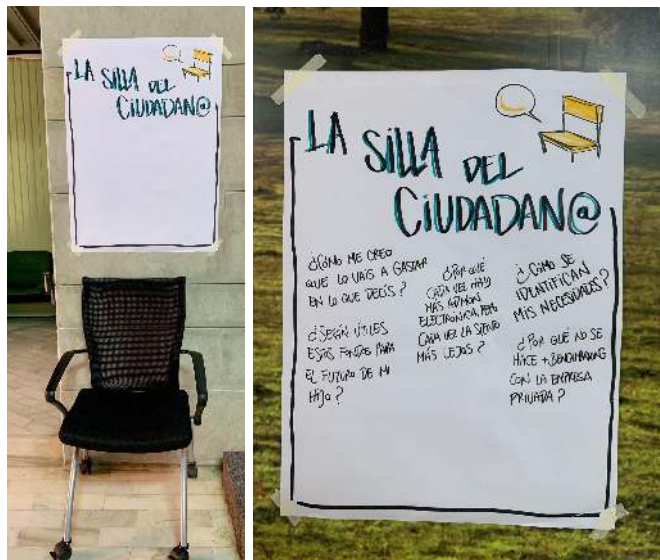 LA SILLA DEL
CIUDADAN@
LA SILLA DEL
CIUDADAN@
¿CÓMO ME CREO
QUE LO VAIS A GASTAR
EN LO QUE DECÍS?
¿SERÁN ÚTILES
ESTOS FONDOS PARA
EL FUTURO DE MI
HIJO?
¿POR QUÉ
CADA VEZ HAY
MÁS ADMÓN
ELECTRÓNICA, PERO
CADA VEZ LA SIENTO
MÁS LEJOS?
¿CÓMO SE
IDENTIFICAN
MIS NECESIDADES?
¿POR QUÉ NO SE
HACE + BENCHMARKING
CON LA EMPRESA
PRIVADA?